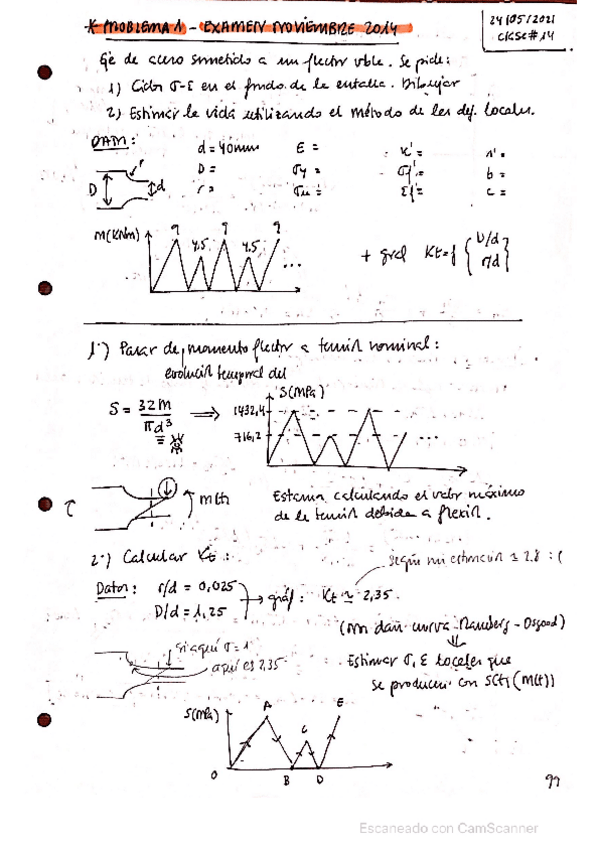 * PROBLEMA 1 - EXAMEN NOVIEMBRE 2014
24/05/2021
CLASE #14
Eje de acero sometido a un flector vble. Se pide:
1) Ciclos σ-ε en el fondo de la entalla. Dibujar
2) Estimar la vida utilizando el método de las def. locales.
DATOS:
d = 40mm E = K' = n' =
D = σy = σf' = b =
r = σu = εf' = c =
D r d
M(KNm) 9 4,5 9 4,5 9 ...
+ gráf Kt = f { D/d r/d }
1º) Pasar de momento flector a tensión nominal:
evolución temporal del
S = 32M / πd³ ⟹
S(MPa)
1432,4
716,2
...
M(t)
Estamos calculando el valor máximo
de la tensión debida a flexión.
2º) Calcular Kt:
según mi estimación ≃ 2.8 :(
Datos: r/d = 0,025
D/d = 1,25
→ gráf: Kt ≃ 2,35.
(nos dan curva Ramberg-Osgood)
si aquí σ = 1
aquí es 2,35
Estimar σ, ε locales que
se producen con S(t) (M(t))
S(MPa) A C E
O B D
99
Escaneado con CamScanner